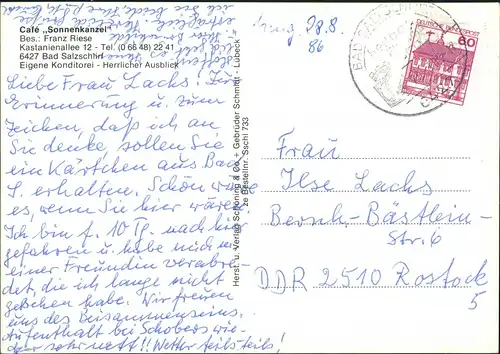 Café „Sonnenkanzel"
Bes.: Franz Riese
Kastanienallee 12 - Tel. (0 66 48) 22 41
6427 Bad Salzschlirf
Eigene Konditorei - Herrlicher Ausblick
Liebe Frau Lachs. Zur
Erinnerung u. zum
Zeichen, daß ich an
Sie denke sollen Sie
ein Kärtchen aus Bad
S. erhalten. Schön wäre
es, wenn Sie hier wären.
Ich bin f. 10 Tg. nach hier
gefahren u. habe mich mit
einer Freundin verabre
det die ich lange nicht
gesehen habe. Wir freuen
uns des Beisammenseins.
Aufenthalt bei Schobers wie-
der sehr nett!! Wetter teils teils!
28.8
86
Herst. u. Verlag Schöning & Co. + Gebrüder Schmidt - Lübeck
Bestellnr. Sschl 733
DEUTSCHE BUNDESPOST
60
Frau
Ilse Lachs
Bernh.-Bästlein-
Str. 6
DDR 2510 Rostock
5